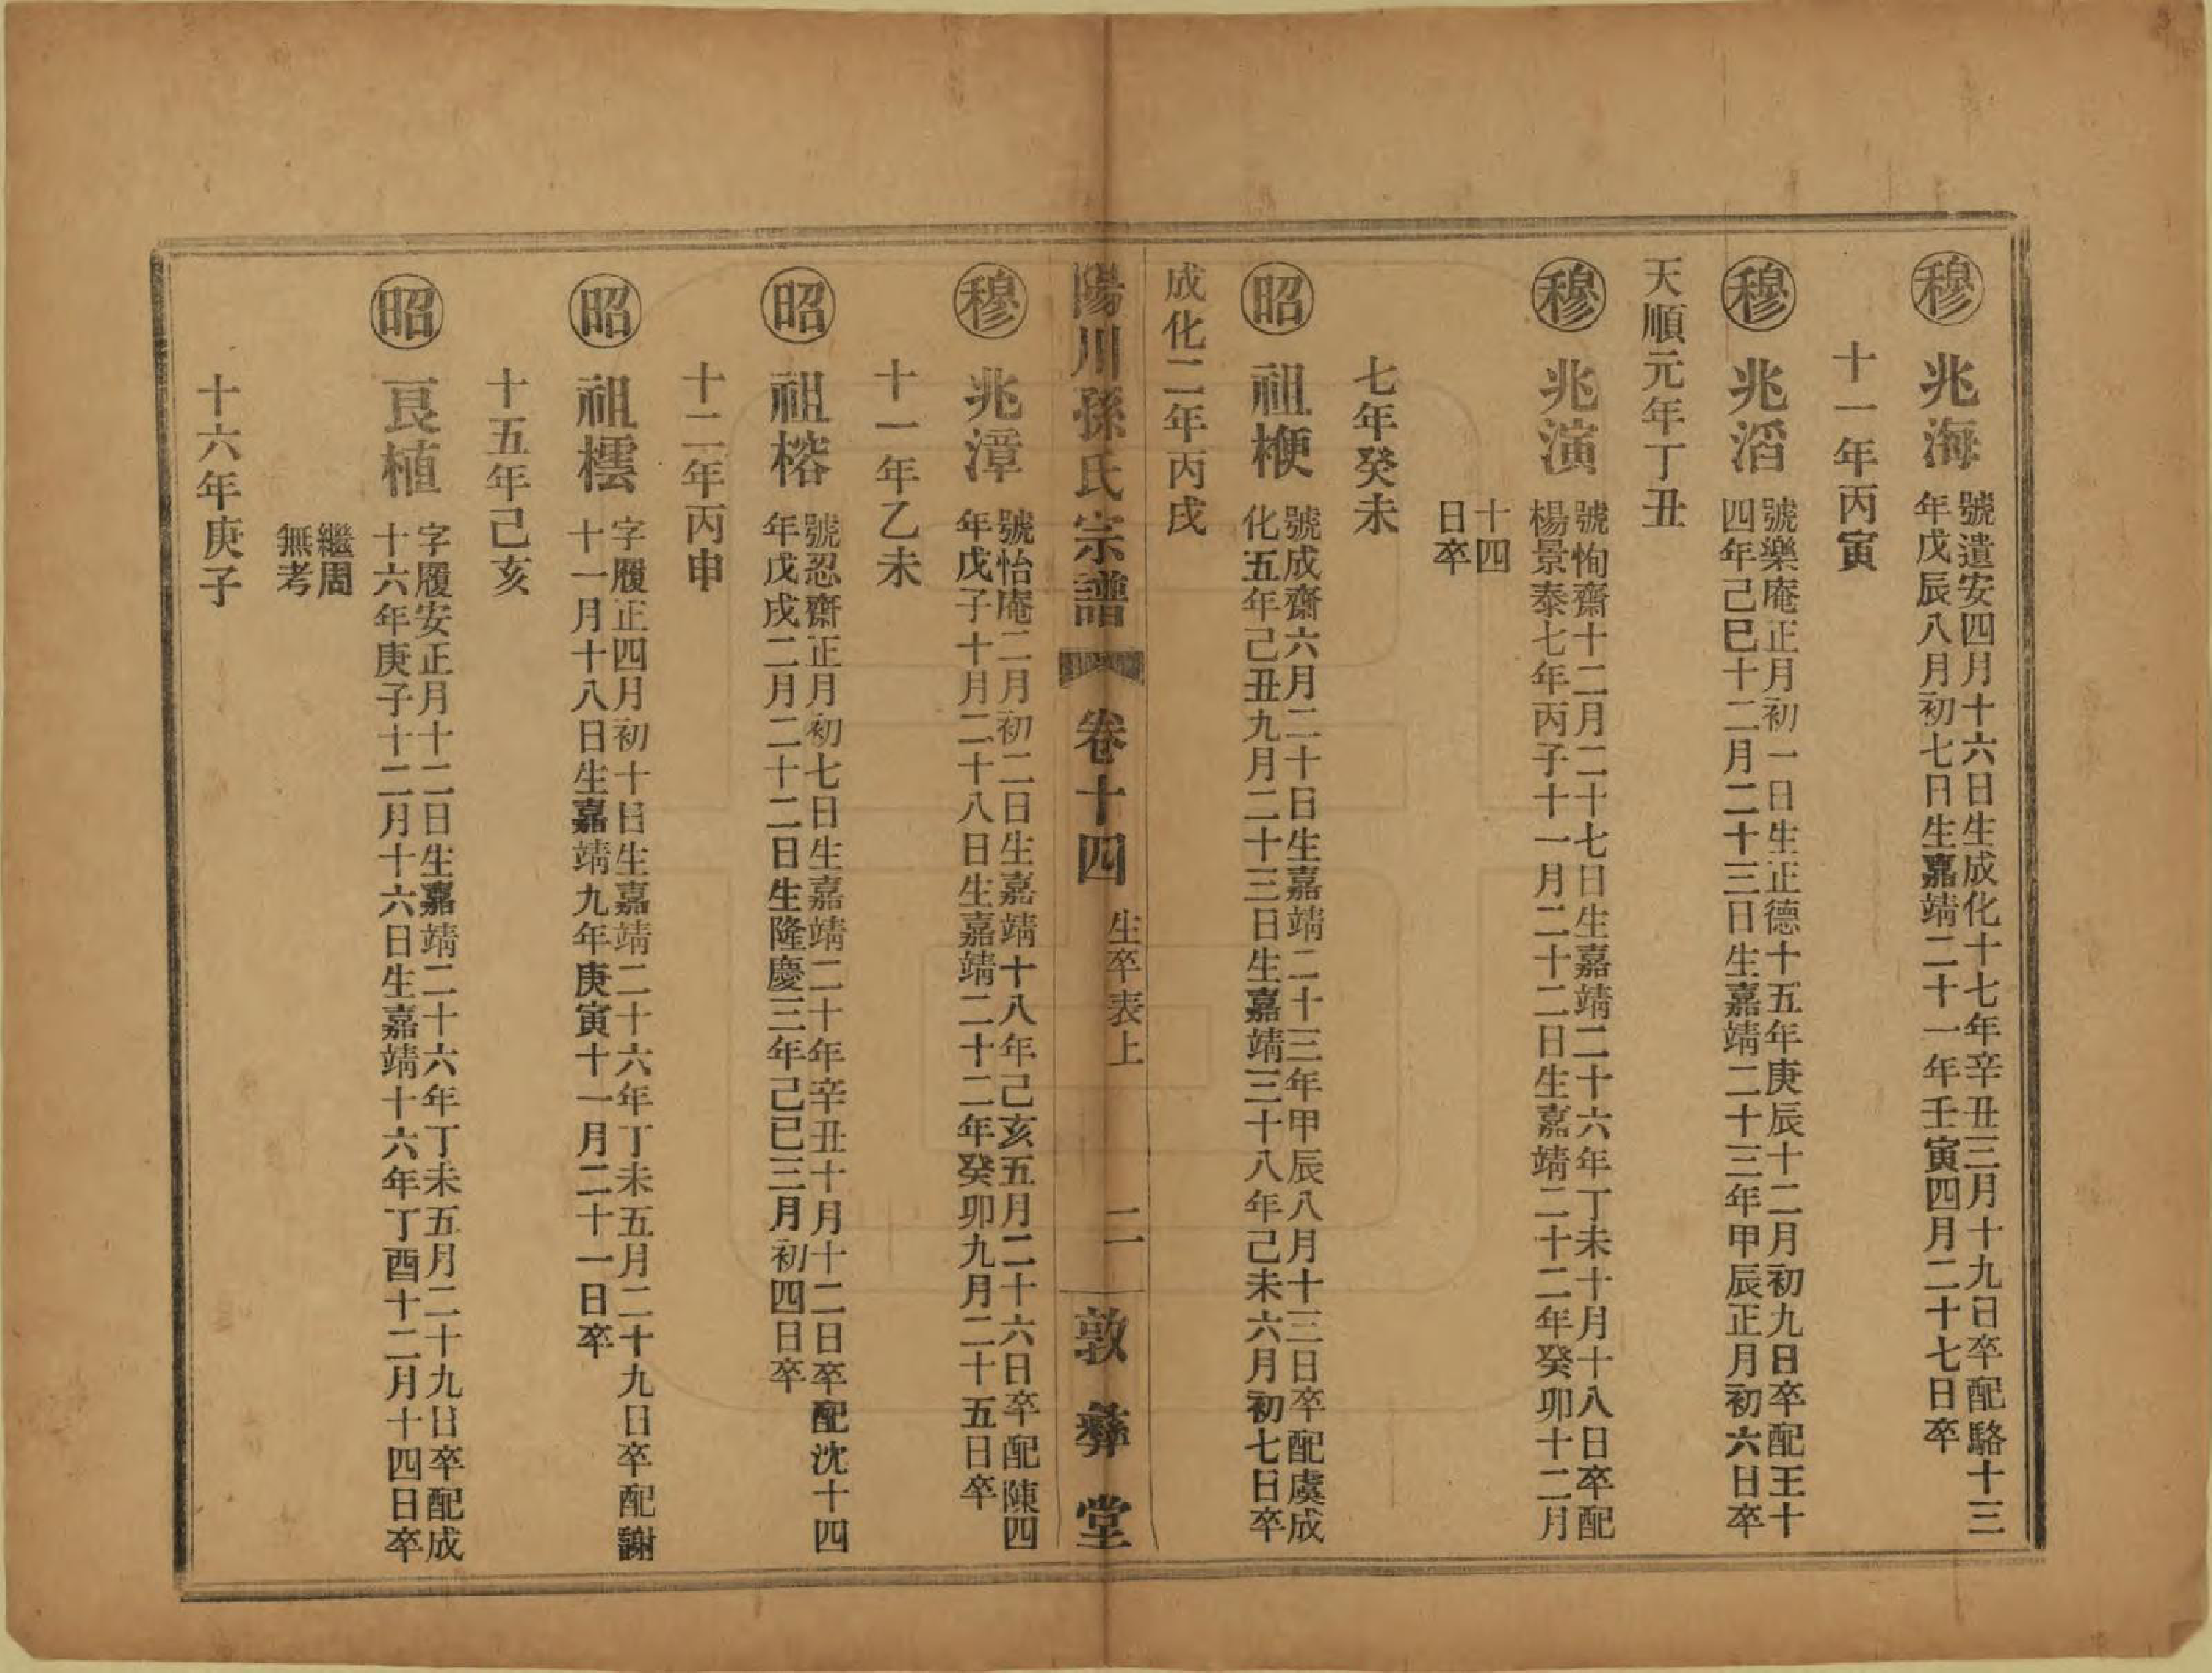 穆 兆海
號遺安四月十六日生成化十七年辛丑三月十九日卒配駱十三
年戊辰八月初七日生嘉靖二十一年壬寅四月二十七日卒
十一年丙寅
穆 兆滔
號樂庵正月初一日生正德十五年庚辰十二月初九日卒配王十
四年己巳十二月二十三日生嘉靖二十三年甲辰正月初六日卒
天順元年丁丑
穆 兆演
號恂齋十二月二十七日生嘉靖二十六年丁未十月十八日卒配
楊景泰七年丙子十一月二十二日生嘉靖二十二年癸卯十二月
十四
日卒
七年癸未
昭 祖楩
號成齋六月二十日生嘉靖二十三年甲辰八月十三日卒配虞成
化五年己丑九月二十三日生嘉靖三十八年己未六月初七日卒
成化二年丙戌
陽川孫氏宗譜 卷十四 生卒表上 二 敦彝堂
穆 兆漳
號怡庵二月初二日生嘉靖十八年己亥五月二十六日卒配陳四
年戊子十月二十八日生嘉靖二十二年癸卯九月二十五日卒
十一年乙未
昭 祖榕
號忍齋正月初七日生嘉靖二十年辛丑十月十二日卒配沈十四
年戊戌二月二十二日生隆慶三年己巳三月初四日卒
十二年丙申
昭 祖橒
字履正四月初十日生嘉靖二十六年丁未五月二十九日卒配謝
十一月十八日生嘉靖九年庚寅十一月二十一日卒
十五年己亥
昭 良植
字履安正月十二日生嘉靖二十六年丁未五月二十九日卒配成
十六年庚子十二月十六日生嘉靖十六年丁酉十二月十四日卒
繼周
無考
十六年庚子